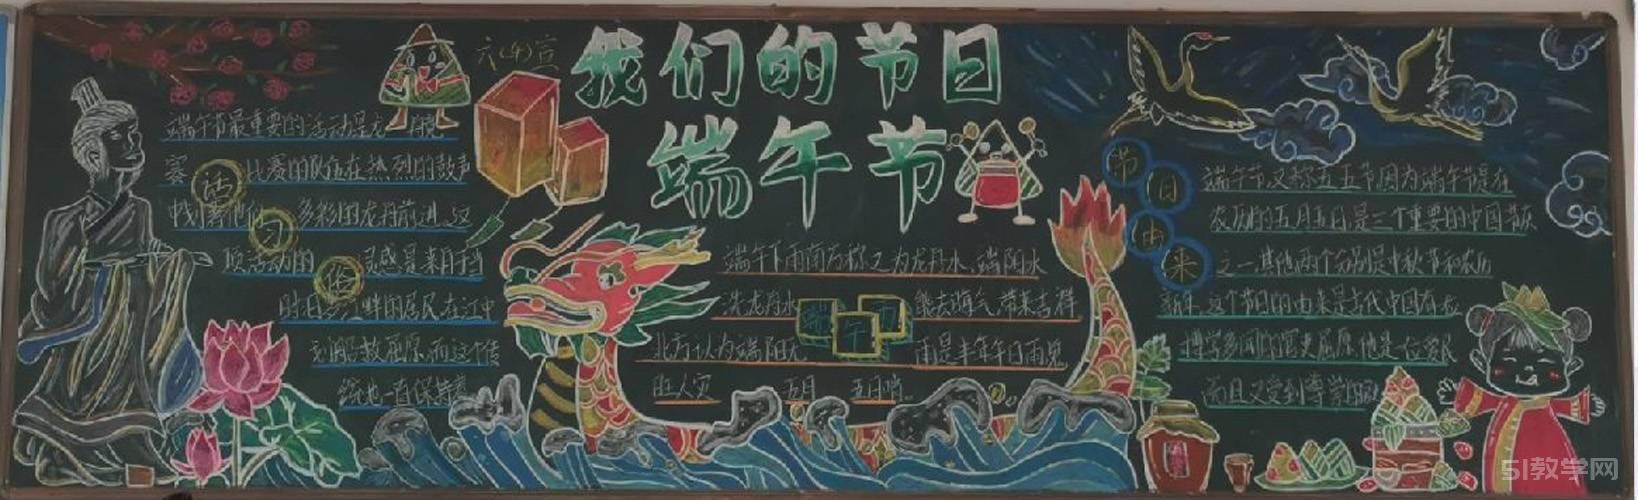 六(4)宣
我们的节日
端午节
端午节最重要的活动是龙
赛 比赛的队伍在热烈的鼓声
多彩的龙舟前进。这
项活动的 灵感是来自于当
时汨罗江畔的居民,在江中
划船救屈原,而这个传
统也一直保持着
活
习
俗
端午下雨南方称之为龙舟水,端阳水
洗龙舟水 能去晦气,带来吉祥
北方以为端阳无 雨是丰年,午日雨见
旺人灾 五月 五月
端
午
雨
节
日
由
来
端午节,又称五五节,因为端午节是在
农历的五月五日,是三个重要的中国节庆
之一,其他两个分别是中秋节和农历
新年。这个节日的由来是古代中国有位
博学多闻的官吏屈原,他是位爱民
而且又受到尊崇的
51教学网